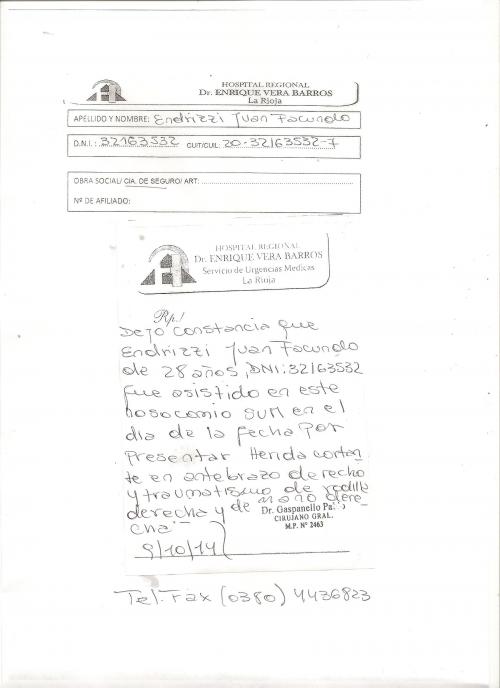 HOSPITAL REGIONAL
Dr. ENRIQUE VERA BARROS
La Rioja
APELLIDO Y NOMBRE: Endrizzi Juan Facundo
D.N.I.: 32163532 CUIT/CUIL: 20-32163532-7
OBRA SOCIAL/ CIA. DE SEGURO/ ART:
Nº DE AFILIADO:
HOSPITAL REGIONAL
Dr. ENRIQUE VERA BARROS
Servicio de Urgencias Medicas
La Rioja
Rp/
Dejo constancia que
Endrizzi Juan Facundo
de 28 años, DNI: 32163532
fue asistido en este
nosocomio SUM en el
día de la fecha por
presentar Herida cortan
te en antebrazo derecho
y traumatismo de rodilla
derecha y de mano dere
cha.
Dr. Gaspanello
CIRUJANO GRAL.
M.P. Nº 2463
9/10/14
Tel. Fax (0380) 4436823